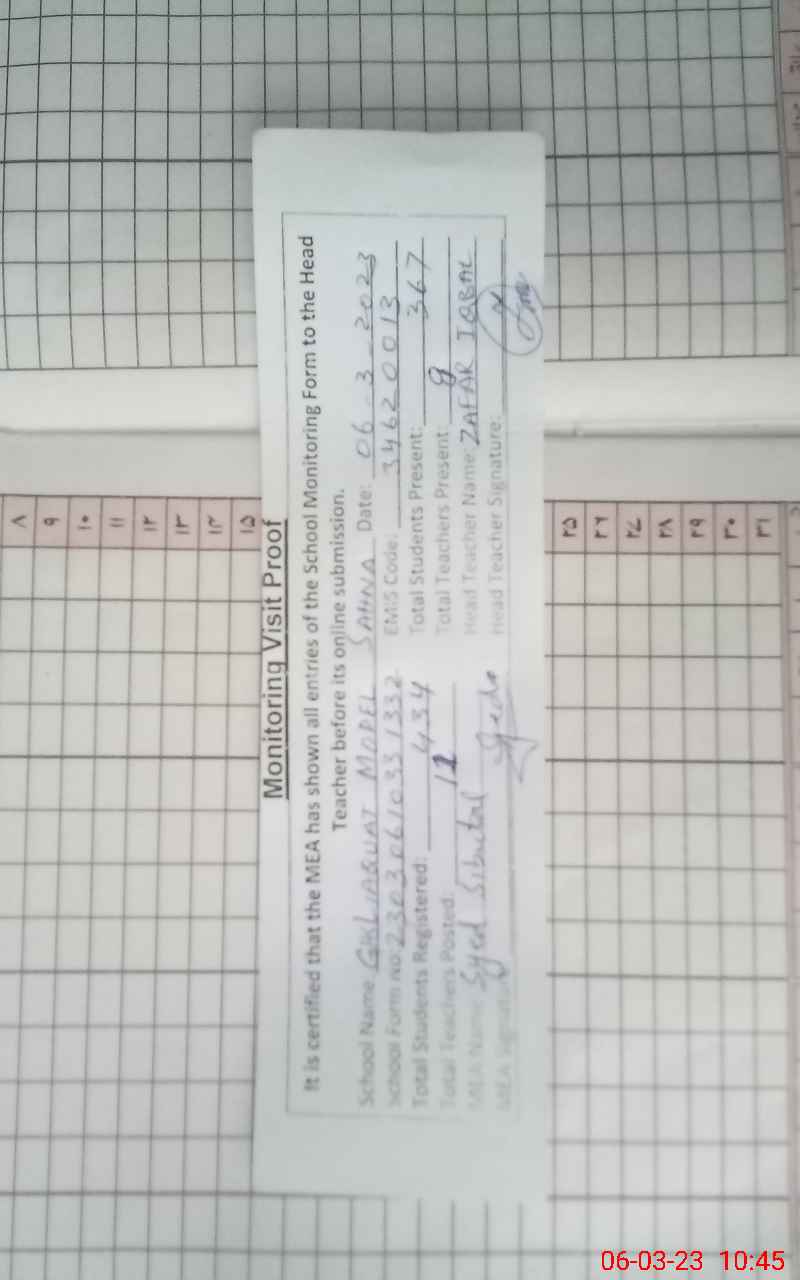 Monitoring Visit Proof
It is certified that the MEA has shown all entries of the School Monitoring Form to the Head
Teacher before its online submission.
School Name: LIAQUAT MODEL SAHNA Date: 06-3-2023
School Form no: 2303061033 1332 EMIS Code: 34620013
Total Students Registered: 434 Total Students Present: 367
Total Teachers Posted: 11 Total Teachers Present: 8
MEA Name: Syed Head Teacher Name: ZAFAR IQBAL
MEA Signature Head Teacher Signature:
۸
۹
۱۰
۱۱
۱۲
۱۳
۱۴
۱۵
۲۵
۲۶
۲۷
۲۸
۲۹
۳۰
۳۱
06-03-23 10:45